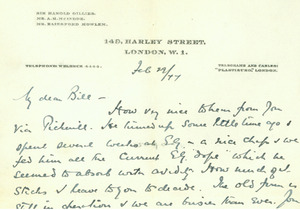 SIR HAROLD GILLIES.
145, HARLEY STREET,
LONDON, W. 1.
TELEPHONE: WELBECK
TELEGRAMS AND CABLES:
LONDON.
Feb
My dear Bill –
How very nice to hear from you
via Pickerill. He turned up some little time ago &
spent several weeks at E.G. – a nice chap & we
fed him all the current E.G. dope which he
seemed to absorb with avidity. How much get
sticks I leave to you to decide. The old firm is
still in & we are busier than ever.